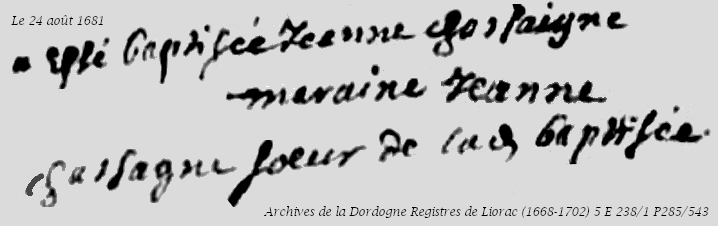 Le 24 août 1681
a esté baptisée Jeanne Chassaigne
maraine Jeanne
Chassagne soeur de lad baptisée.
Archives de la Dordogne Registres de Liorac (1668-1702) 5 E 238/1 P285/543